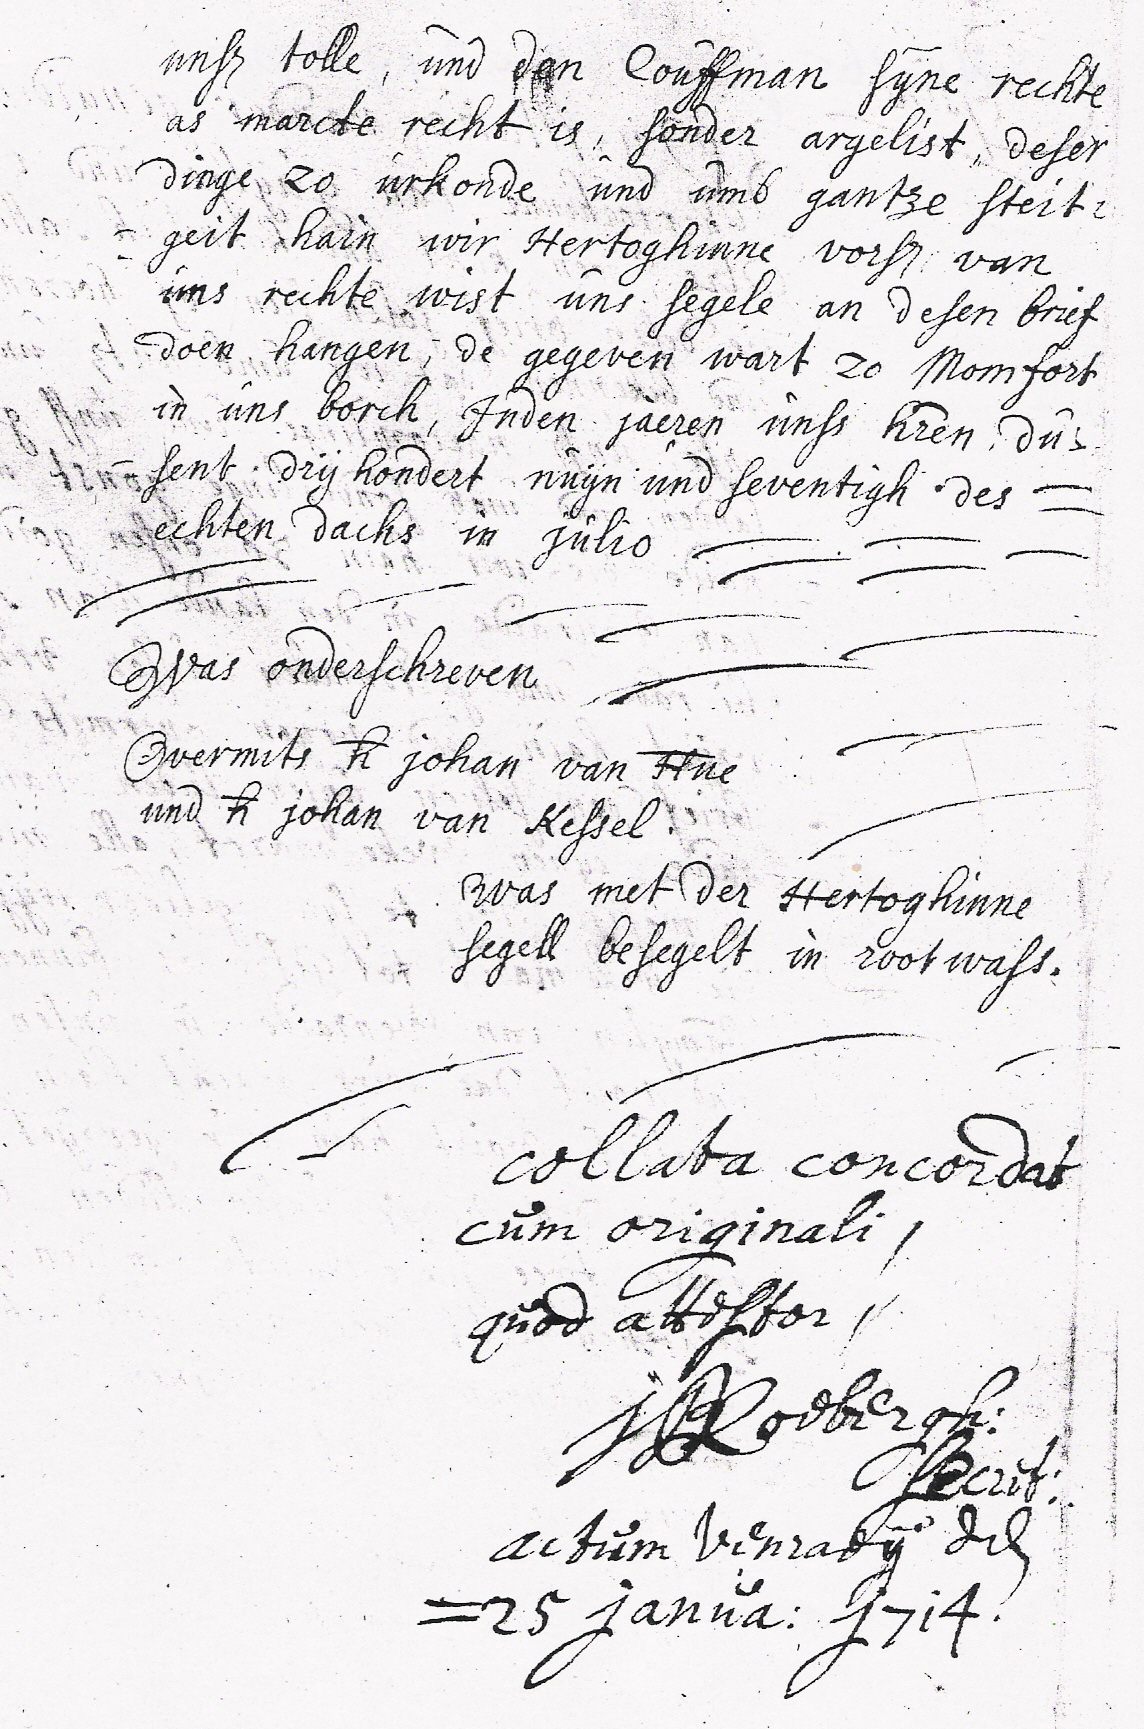 unsz tolle, und den Couffman syne rechte
as marcte recht is, sonder argelist, deser
dinge zo urkonde und umb gantze steit-
geit hain wir Hertoghinne vorsz van
uns rechte wist uns segele an desen brief
doen hangen, de gegeven wart zo Momfort
in uns borch, Inden jaeren unss hren du-
sent drij hondert nuyn und seventigh des
echten dachs in julio
Was onderschreven
Overmits h johan van Hue
und h johan van Kessel.
was met der Hertoghinne
segell besegelt in root wass.
collata concordat
cum originali /
quod attestor /
Rodbergh:
secret:
actum Venradÿ
=25 janua: 1714.